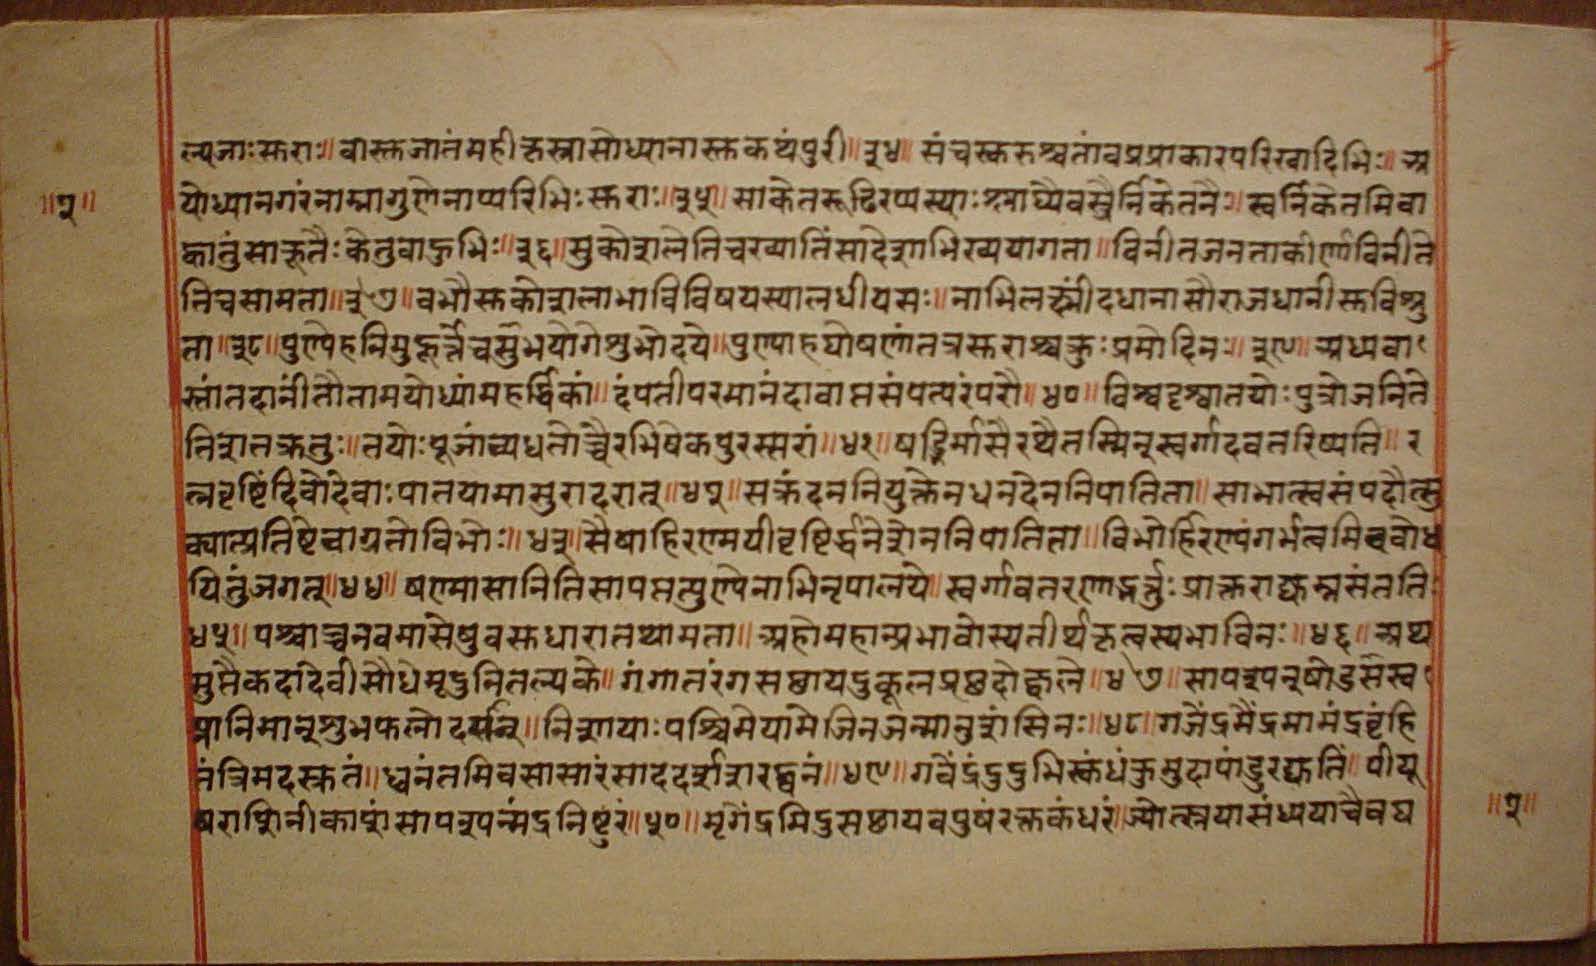 ल्पजाःसुराः॥वास्तुजातंमहीकृत्स्नासौध्यानास्तुकथंपुरी॥३४॥संचस्करुश्चतांवप्रप्राकारपरिखादिभिः॥अ
॥२॥
योध्यानगरंनाम्नागुणेनाप्यरिभिःसुराः॥३५॥साकेतरूढिरप्यस्याःश्लाघ्यैवस्वैर्निकेतनैः॥स्वर्निकेतमिवा
कातुंसाकूतैःकेतुवाहुभिः॥३६॥सुकोशलेतिचख्यातिंसादेशाभिख्ययागता॥विनीतजनताकीर्णाविनीते
तिचसामता॥३७॥वभौसुकोशलाभाविविषयस्यालघीयसः॥नाभिलक्ष्मींदधानासौराजधानीसुविश्रु
ता॥३८॥पुण्येहनिमुहूर्त्तेचसुभयोगेशुभोदये॥पुण्याहघोषणांतत्रसुराश्चक्रुःप्रमोदिनः॥३९॥अध्यवा
स्तांतदानींतौतामयोध्यांमहर्द्धिकां॥दंपतीपरमानंदावाप्तसंपत्परंपरौ॥४०॥विश्वदृश्वातयोःपुत्रोजनिते
तिशतक्रतुः॥तयोःपूजांव्यधतोच्चैरभिषेकपुरस्सरां॥४१॥षड्भिर्मासैरथैतस्मिन्स्वर्गादवतरिष्यति॥र
त्नवृष्टिंदिवोदेवाःपातयामासुरादरात्॥४२॥सक्रंदननियुक्तेनधनदेननिपातिता॥साभात्स्वसंपदौत्सु
क्यात्प्रतिष्टेवाग्रतोविभोः॥४३॥सैषाहिरण्मयीवृष्टिर्द्धनेशेननिपातिता॥विभोर्हिरण्यंगर्भत्वमिववोध
यितुंजगत्॥४४॥षण्मासानितिसापप्तत्पुण्येनाभिनृपालये॥स्वर्गावतरणाद्भर्तुःप्राक्तराद्युम्नसंततिः
४५॥पश्चाच्चनवमासेषुवसुधारातथामता॥अहोमहान्प्रभावोस्यतीर्थकृत्वस्यभाविनः॥४६॥अथ
सुप्तैकदादेवीसौधेमृदुनितल्पके॥गंगातरंगसछायदुकूलप्रछदोज्वले॥४७॥सापश्यत्षोडशस्व
प्नानिमान्शुभफलोदयान्॥निशायाःपश्चिमेयामेजिनजन्मानुशंसिनः॥४८॥गजेंद्रमैंद्रमामंद्रवृंहि
तंत्रिमदस्रुतं॥ध्वनंतमिवसासारंसाददर्शशरद्घनं॥४९॥गवेंद्रंदुदुभिस्कंधंकुमुदापांडुरद्युतिं॥पीयू
षराशिनीकाशंसापश्यन्मंद्रनिष्टुरं॥५०॥मृगेंद्रमिदुसछायवपुषंरक्तकंधरं॥ज्योत्स्नयासंध्ययाचैवघ
॥२॥